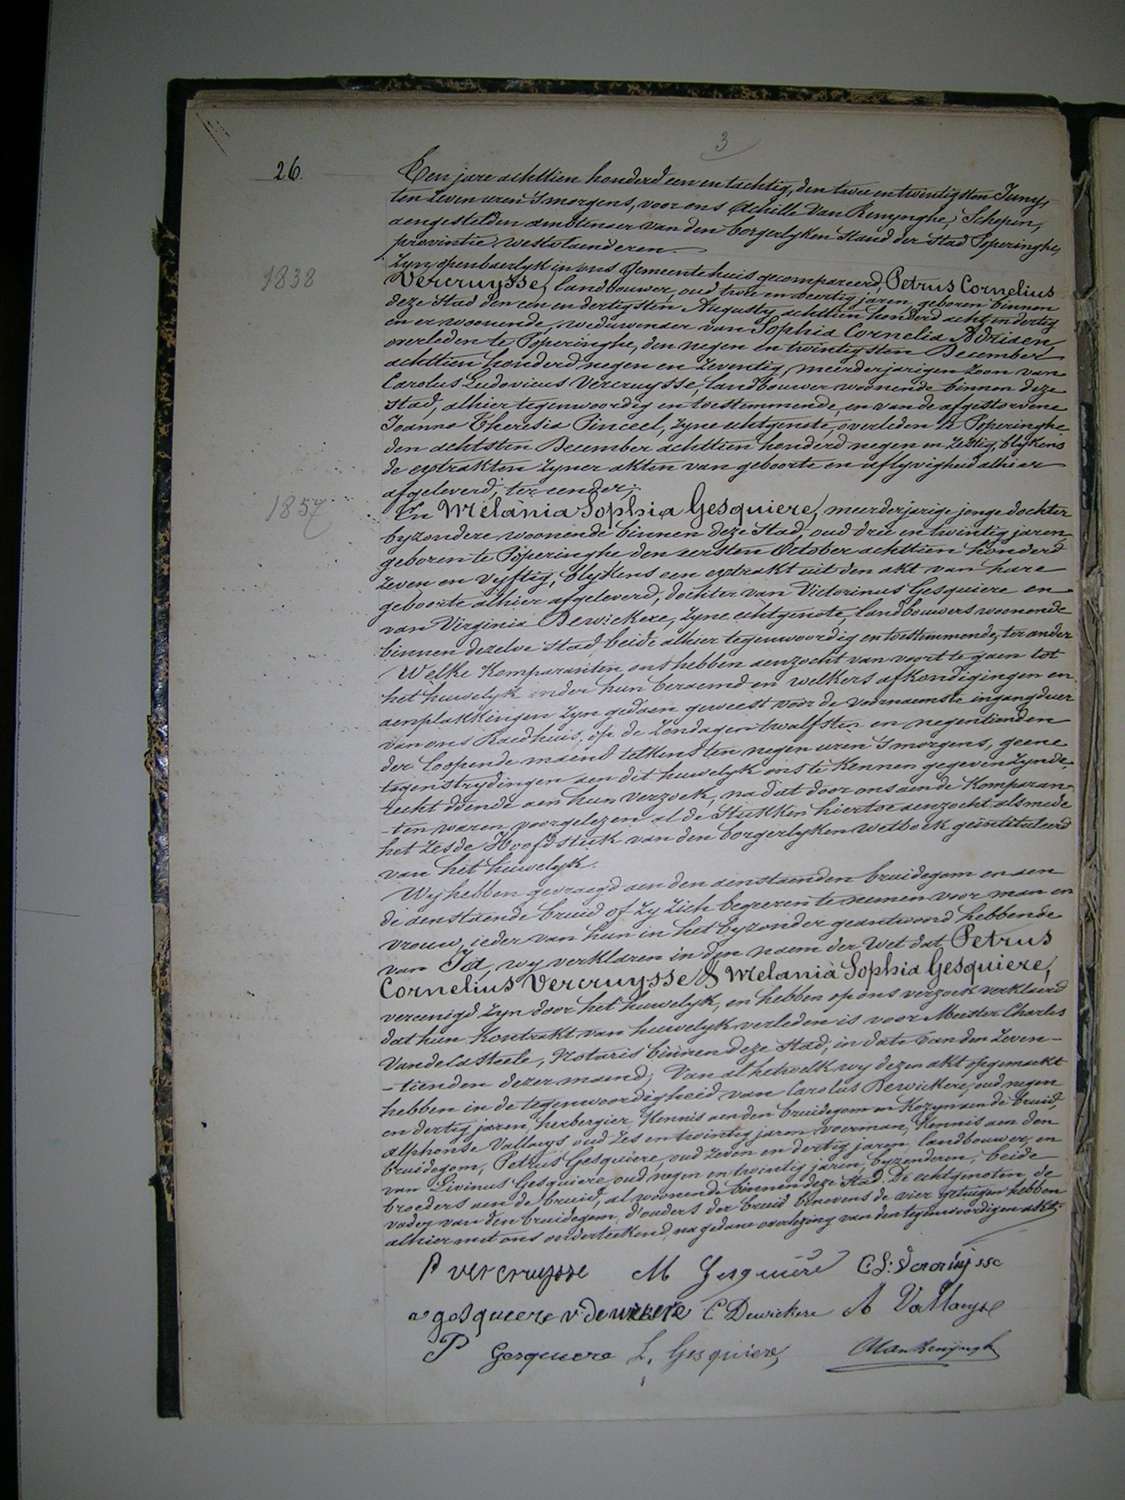 3
26
Ten jare achttien honderd een en tachtig, den twee en twintigsten Juny,
ten zeven uren 's morgens, voor ons Achille Van Renynghe, Schepen,
aengestelden ambtenaer van den borgerlyken Stand der Stad Poperinghe,
provintie Westvlaenderen.
Zyn openbaerlyk in ons Gemeentehuis gecompareerd, Petrus Cornelius
1838
Vercruysse, landbouwer, oud twee en veertig jaren, geboren binnen
deze Stad den een en dertigsten Augusty achttien honderd acht en dertig
en er woonende, weduwenaer van Sophia Cornelia Adriaen,
overleden te Poperinghe, den negen en twintigsten December
achttien honderd negen en zeventig, meerderjarigen zoon van
Carolus Ludovicus Vercruysse, landbouwer woonende binnen deze
stad, alhier tegenwoordig en toestemmende, en van de afgestorvene
Joanna Theresia Pinceel, zyne echtgenote, overleden te Poperinghe
den achtsten December achttien honderd negen en zestig, blykens
de extrakten zyner akten van geboorte en aflyvigheid alhier
afgeleverd, ter eender;
1857
En Melania Sophia Gesquiere, meerderjarige jonge dochter
byzondere woonende binnen deze Stad, oud drie en twintig jaren
geboren te Poperinghe den eersten October achttien honderd
zeven en vyftig, blykens een extrakt uit den akt van hare
geboorte alhier afgeleverd, dochter van Victorinus Gesquiere en
van Virginia Dewickere, zyne echtgenote, landbouwers woonende
binnen dezelve stad, beide alhier tegenwoordig en toestemmende, ter ander
Welke Komparanten ons hebben aenzocht van voort te gaen tot
het huwelyk onder hun beraemd en welkers afkondigingen en
aenplakkingen zyn gedaen geweest voor de voornaemste ingangdeur
van ons Raedhuis, op de Zondagen twalfsten en negentienden
der loopende maend telkens ten negen uren 's morgens, geene
tegenstrydingen aen dit huwelyk ons te kennen gegeven zynde,
recht doende aen hun verzoek, na dat door ons aen de Komparan-
-ten waren voorgelezen al de Stukken hiertoe aenzocht als mede
het zesde Hoofdstuk van den borgerlyken Wetboek geïntituleerd
van het huwelyk.
Wy hebben gevraegd aen den aenstaenden bruidegom en aen
de aenstaende bruid of zy zich begeeren te nemen voor man en
vrouw, ieder van hun in het byzonder geantwoord hebbende
van Ja, wy verklaren in den naem der Wet dat Petrus
Cornelius Vercruysse & Melania Sophia Gesquiere,
vereenigd zyn door het huwelyk, en hebben op ons verzoek verklaerd
dat hun kontrakt van huwelyk verleden is voor Meester Charles
Vandelasteele, Notaris binnen deze Stad, in date van den zeven-
-tienden dezer maend; Van al hetwelk wy dezen akt opgemaekt
hebben in de tegenwoordigheid van Carolus Dewickere, oud negen
en dertig jaren, herbergier, Kennis aen den bruidegom en Kozyn aen de bruid,
Alphonse Vallaeys oud zes en twintig jaren voerman, Kennis aen den
bruidegom, Petrus Gesquiere, oud zeven en dertig jaren, landbouwer, en
van Livinus Gesquiere oud negen en twintig jaren, byzonderen, beide
broeders aen de bruid, al woonende binnen deze Stad. De echtgenoten, de
vader van den bruidegom, d'ouders der bruid benevens de vier getuigen hebben
alhier met ons onderteekend, na gedane voorlezing van den tegenwoordigen akt.
P vercruysse M Gesquiere C L: Vercruysse
v gesquiere v: dewickere C Dewickere A Vallaeys
P Gesquiere L, Gesquiere AVanRenynghe